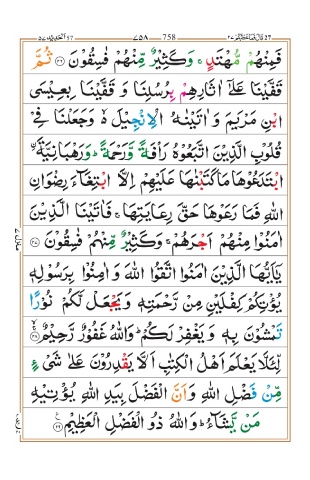 ٧٥٨ 758
فَمِنْهُمْ مُّهْتَدٍ ۚ وَكَثِيْرٌ مِّنْهُمْ فٰسِقُوْنَ ﴿٢٦﴾ ثُمَّ
قَفَّيْنَا عَلٰٓى اٰثَارِهِمْ بِرُسُلِنَا وَ قَفَّيْنَا بِعِيْسَى
ابْنِ مَرْيَمَ وَ اٰتَيْنٰهُ الْاِنْجِيْلَ ۙ وَ جَعَلْنَا فِيْ
قُلُوْبِ الَّذِيْنَ اتَّبَعُوْهُ رَاْفَةً وَّرَحْمَةً ؕ وَ رَهْبَانِيَّةَ اِۨ
ابْتَدَعُوْهَا مَا كَتَبْنٰهَا عَلَيْهِمْ اِلَّا ابْتِغَآءَ رِضْوَانِ
اللّٰهِ فَمَا رَعَوْهَا حَقَّ رِعَايَتِهَا ۚ فَاٰتَيْنَا الَّذِيْنَ
اٰمَنُوْا مِنْهُمْ اَجْرَهُمْ ۚ وَكَثِيْرٌ مِّنْهُمْ فٰسِقُوْنَ ﴿٢٧﴾
يٰٓاَيُّهَا الَّذِيْنَ اٰمَنُوا اتَّقُوا اللّٰهَ وَ اٰمِنُوْا بِرَسُوْلِهٖ
يُؤْتِكُمْ كِفْلَيْنِ مِنْ رَّحْمَتِهٖ وَ يَجْعَلْ لَّكُمْ نُوْرًا
تَمْشُوْنَ بِهٖ وَ يَغْفِرْ لَكُمْ ؕ وَاللّٰهُ غَفُوْرٌ رَّحِيْمٌ ﴿٢٨﴾
لِّئَلَّا يَعْلَمَ اَهْلُ الْكِتٰبِ اَلَّا يَقْدِرُوْنَ عَلٰى شَيْءٍ
مِّنْ فَضْلِ اللّٰهِ وَ اَنَّ الْفَضْلَ بِيَدِ اللّٰهِ يُؤْتِيْهِ
مَنْ يَّشَآءُ ؕ وَاللّٰهُ ذُو الْفَضْلِ الْعَظِيْمِ ﴿٢٩﴾